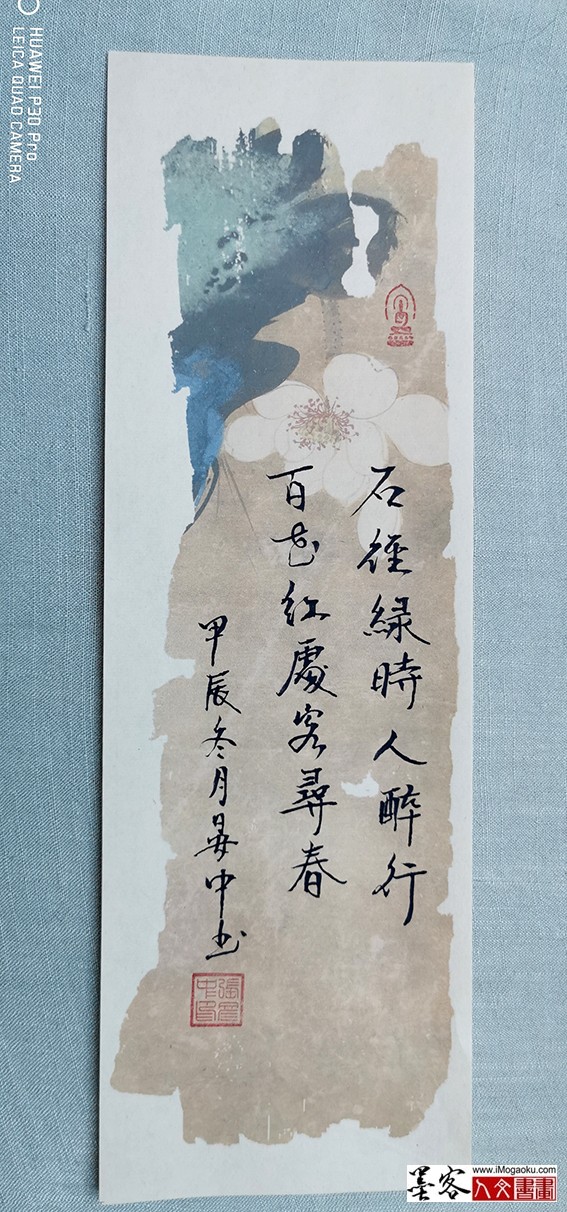 石徑綠時人醉行
百花紅處客尋春
甲辰冬月昙中书
HUAWEI P30 Pro
LEICA QUAD CAMERA
www.iMogaoku.com
墨客
人文書畫